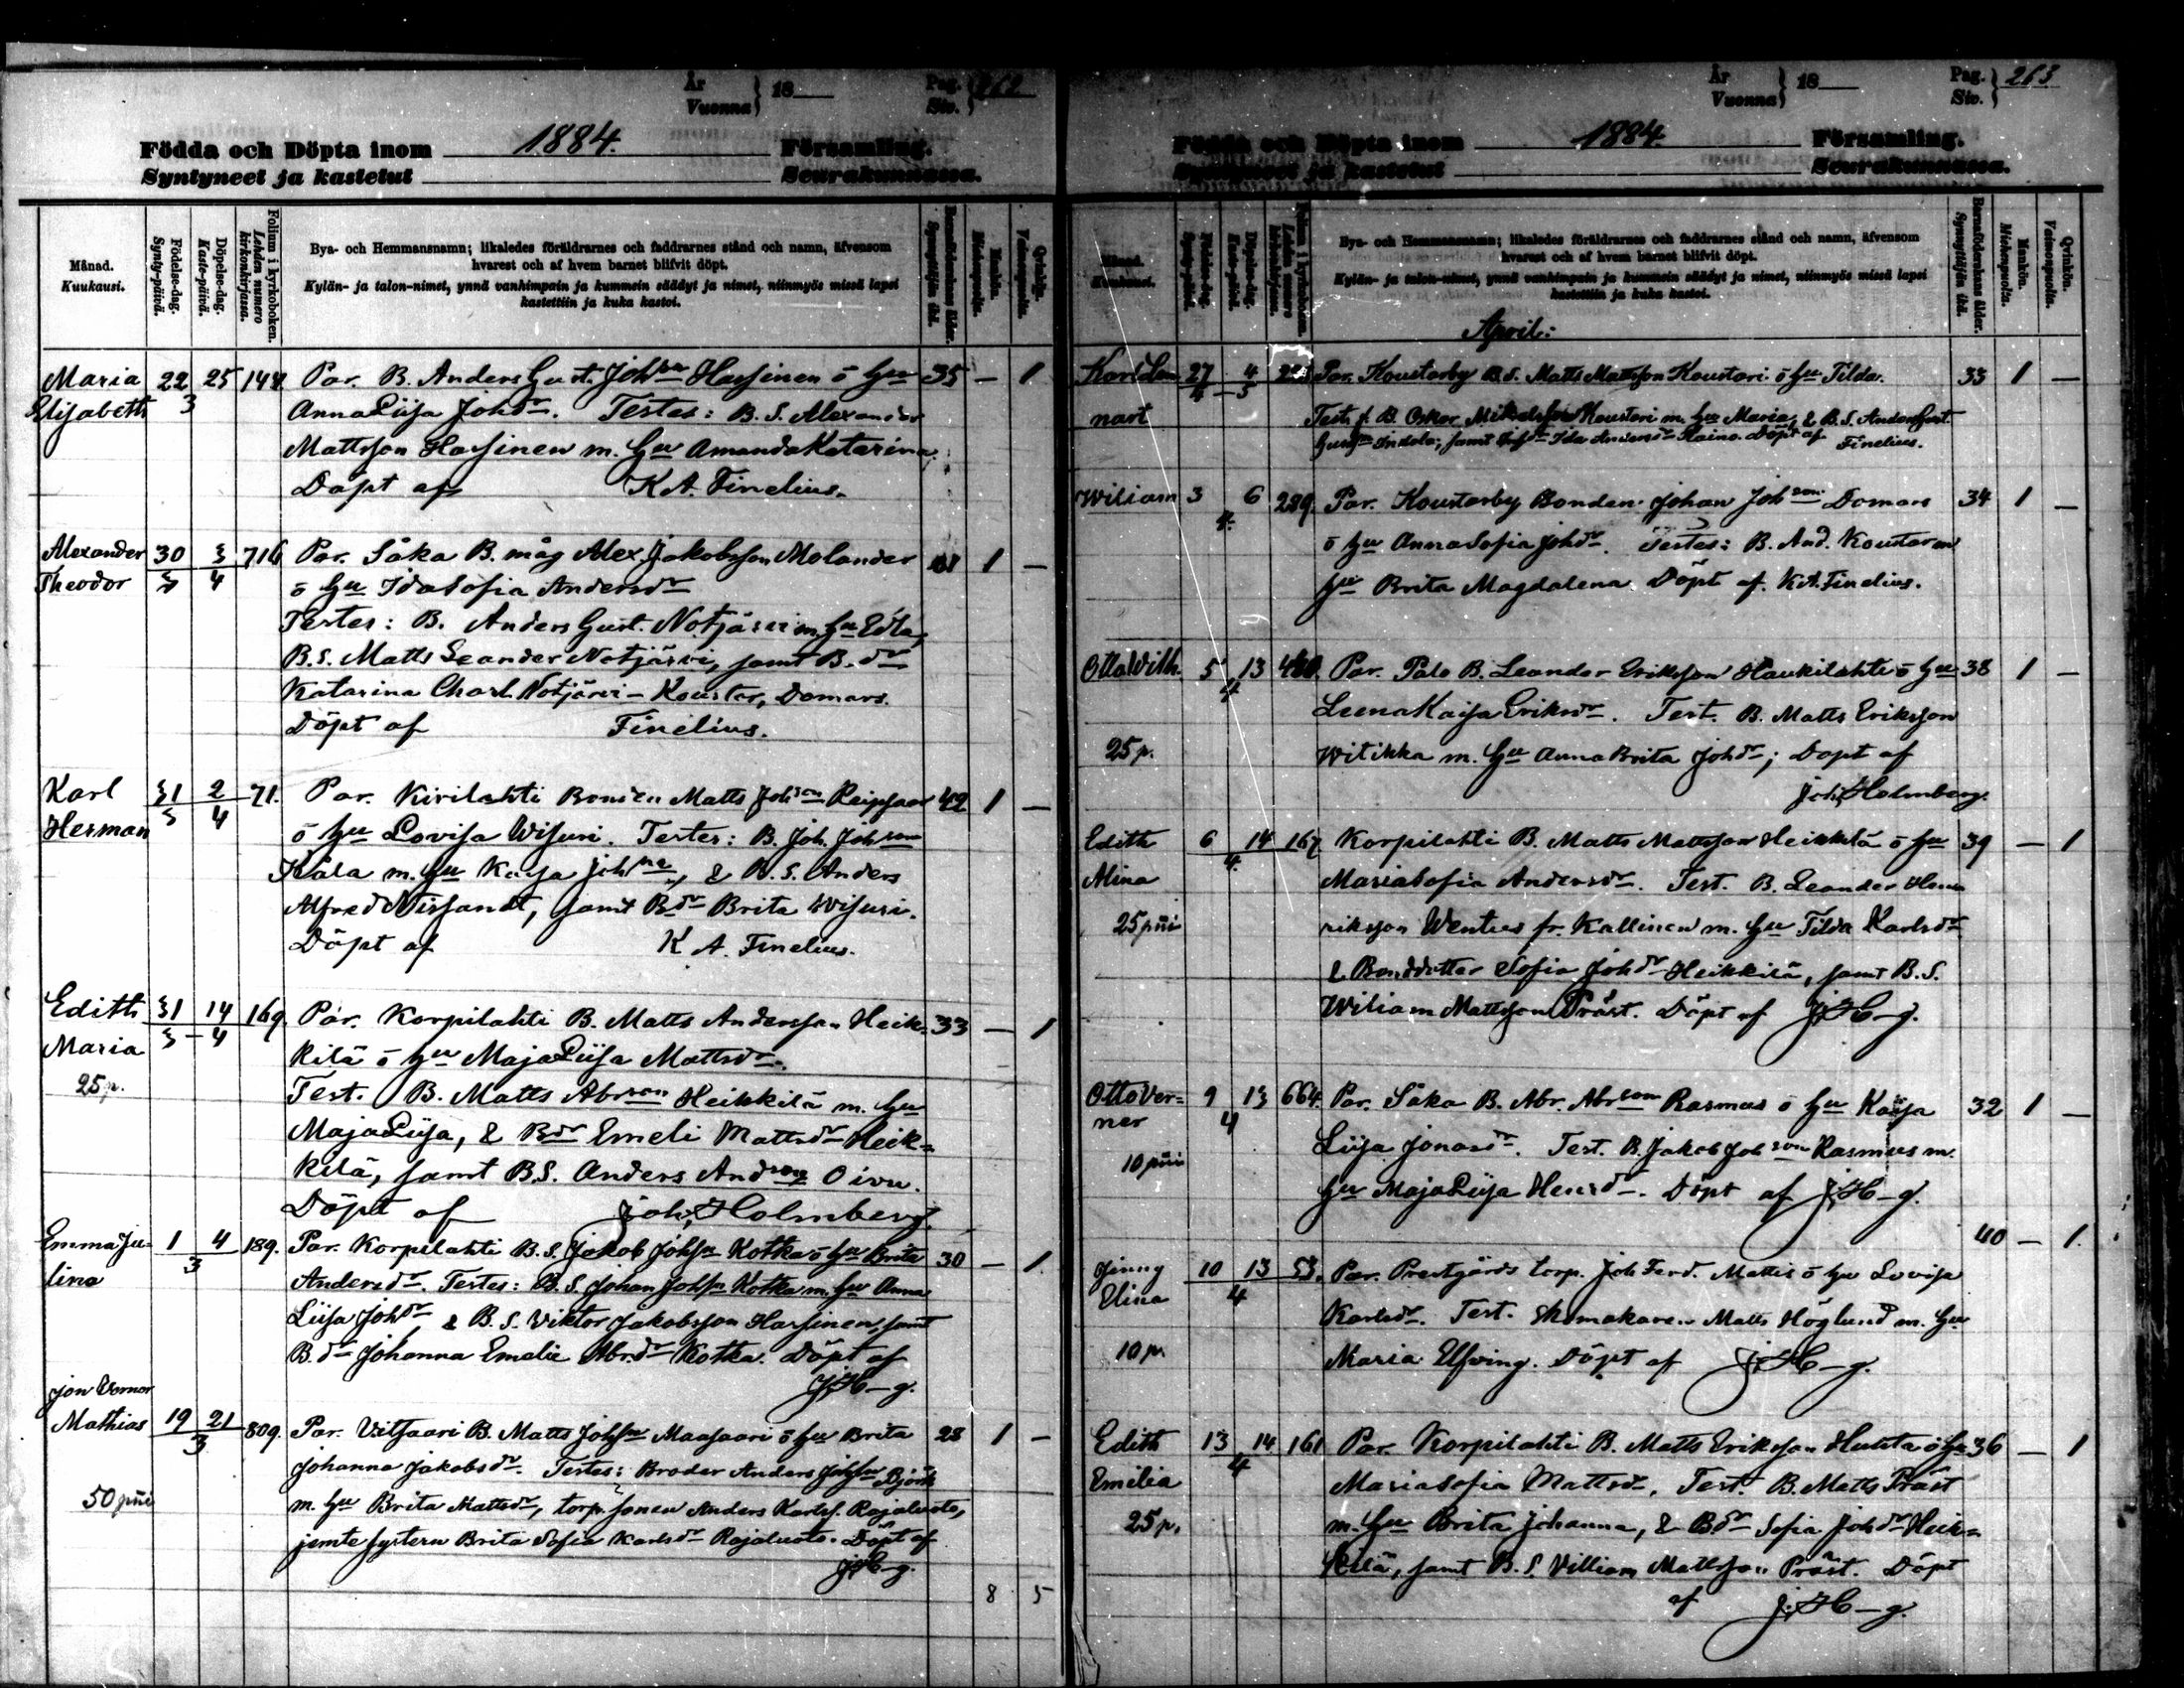 År
Vuonna } 18
Pag.
Siv. } 262
Födda och Döpta inom 1884. Församling.
Syntyneet ja kastetut Seurakunnassa.
Månad.
Kuukausi.
Födelse-dag.
Synty-päivä.
Döpelse-dag.
Kaste-päivä.
Folium i kyrkoboken.
Lehden numero
kirkonkirjassa.
Bya- och Hemmansnamn; likaledes föräldrarnes och faddrarnes stånd och namn, äfvensom
hvarest och af hvem barnet blifvit döpt.
Kylän- ja talon-nimet, ynnä vanhimpain ja kummein säädyt ja nimet, niinmyös missä lapsi
kastettiin ja kuka kastoi.
Barnaföderskans ålder.
Synnyttäjän ikä.
Mankön.
Miehenpuolia.
Qvinkön.
Vaimonpuolia.
Maria 22 25 148 Par. B. Anders Gust. Johsn Hassinen o hu 35 — 1
Elisabeth 3 Anna Liisa Johdr. Testes: B. S. Alexander
Mattsson Hassinen m. hu Amanda Katarina.
Döpt af K A. Finelius.
Alexander 30 3 716 Par. Såka B. måg Alex. Jakobsson Molander 1 —
Theodor 3 4 o hu Ida Sofia Andersdr
Testes: B. Anders Gust. Notjärvi m. hu Edla,
B. S. Matts Leander Notjärvi, samt B. dr
Katarina Charl. Notjärvi - Koustar, Domars.
Döpt af Finelius.
Karl 31 2 71. Par. Kirilahti Bonden Matts Johson Reipsaar 42 1 —
Herman 3 4 o hu Lovisa Wisuri. Testes: B. Joh. Johson
Kåla m. hu Kajsa Johna, & B. S. Anders
Alfred Nissandt, samt Bdr Brita Wisuri.
Döpt af K A. Finelius.
Edith 31 14 169. Par. Korpilahti B. Matts Andersson Heik- 33 — 1
Maria 3 - 4 kilä o hu Maja Liisa Mattsdr.
25 p. Test. B. Matts Abrson Heikkilä m. hu
Maja Liisa, & Bdr Emeli Mattsdr Heik=
kilä, samt B. S. Anders Andson Oivu.
Döpt af Joh. Holmberg.
Emma Ju- 1 4 189. Par. Korpilahti B. S. Jakob Johsn Kotka o hu Brita 30 — 1.
lina 3 Andersdr. Testes: B. S. Johan Johsn Kotka m. hu Anna
Liisa Johdr & B. S. Viktor Jakobsson Hassinen, samt
B. dr Johanna Emelie Abr.dr Kotka. Döpt af
J. H—g.
Jon Verner
Mathias 19 21 809. Par. Vitsaari B. Matts Johsn Maasaari o hu Brita 28 1 —
3 Johanna Jakobsdr. Testes: Broder Anders Johsn Björk
50 pni m. hu Brita Mattsdr, torp. sonen Anders Karlss. Rajaluoto,
jemte systern Brita Sofia Karlsdr Rajaluoto. Döpt af
J. H—g.
8 5
År
Vuonna } 18
Pag.
Siv. } 263
Födda och Döpta inom 1884. Församling.
Syntyneet ja kastetut Seurakunnassa.
Månad.
Kuukausi.
Födelse-dag.
Synty-päivä.
Döpelse-dag.
Kaste-päivä.
Folium i kyrkoboken.
Lehden numero
kirkonkirjassa.
Bya- och Hemmansnamn; likaledes föräldrarnes och faddrarnes stånd och namn, äfvensom
hvarest och af hvem barnet blifvit döpt.
Kylän- ja talon-nimet, ynnä vanhimpain ja kummein säädyt ja nimet, niinmyös missä lapsi
kastettiin ja kuka kastoi.
Barnaföderskans ålder.
Synnyttäjän ikä.
Mankön.
Miehenpuolia.
Qvinkön.
Vaimonpuolia.
April:
Karl Len 27 4 Par. Koustarby B. S. Matts Mattsson Koustari o hu Tilda. 33 1 —
nart 4 - 5 Test. B. Oskar Mikelsson Koustari m. hu Maria, & B. S. Anders Gust.
Indola; samt Ida Andersdr Raino. Döpt af Finelius.
Wiliam 3 6 289. Par. Koustarby Bonden Johan Johson Domars 34 1 —
4. o hu Anna Sofia Johdr. Testes: B. And. Koustar m
hu Brita Magdalena. Döpt af K. A. Finelius.
Otto Wilh. 5 13 460. Par. Palo B. Leander Eriksson Haukilahti o hu 38 1 —
4 Leena Kajsa Eriksdr. Test. B. Matts Eriksson
25 p. Witikka m. hu Anna Brita Johdr; Döpt af
Joh. Holmberg.
Edith 6 14 167 Korpilahti B. Matts Mattsson Heikkilä o hu 39 — 1
Alina 4. Maria Sofia Andersdr. Test. B. Leander Hen
25 pni riksson Wenties fr. Kallinen m. hu Tilda Karlsdr
& Bonddotter Sofia Johdr Heikkilä, samt B. S.
Wiliam Mattsson Präst. Döpt af J. H—g.
Otto Ver= 9 13 664. Par. Såka B. Abr. Abrson Rasmus o hu Kajsa 32 1 —
ner 4 Liisa Jonasdr. Test. B. Jakob Johson Rasmus m.
10 pni hu Maja Liisa Hensdr. Döpt af J. H—g.
40 — 1.
Jenny 10 13 53. Par. Prestgårds torp. Joh Ferd. Mattis o hu Lovisa
Elina 4 Karlsdr. Test. Skomakaren Matts Höglund m. hu
10 p. Maria Elfving. Döpt af J. H—g.
Edith 13 14 161 Par. Korpilahti B. Matts Eriksson Huhta o hu 36 — 1
Emilia 4 Maria Sofia Mattsdr. Test. B. Matts Präst
25 p. m. hu Brita Johanna, & Bdr Sofia Johdr Heik=
kilä, samt B. S. Villiam Mattsson Präst. Döpt
af J. H—g.